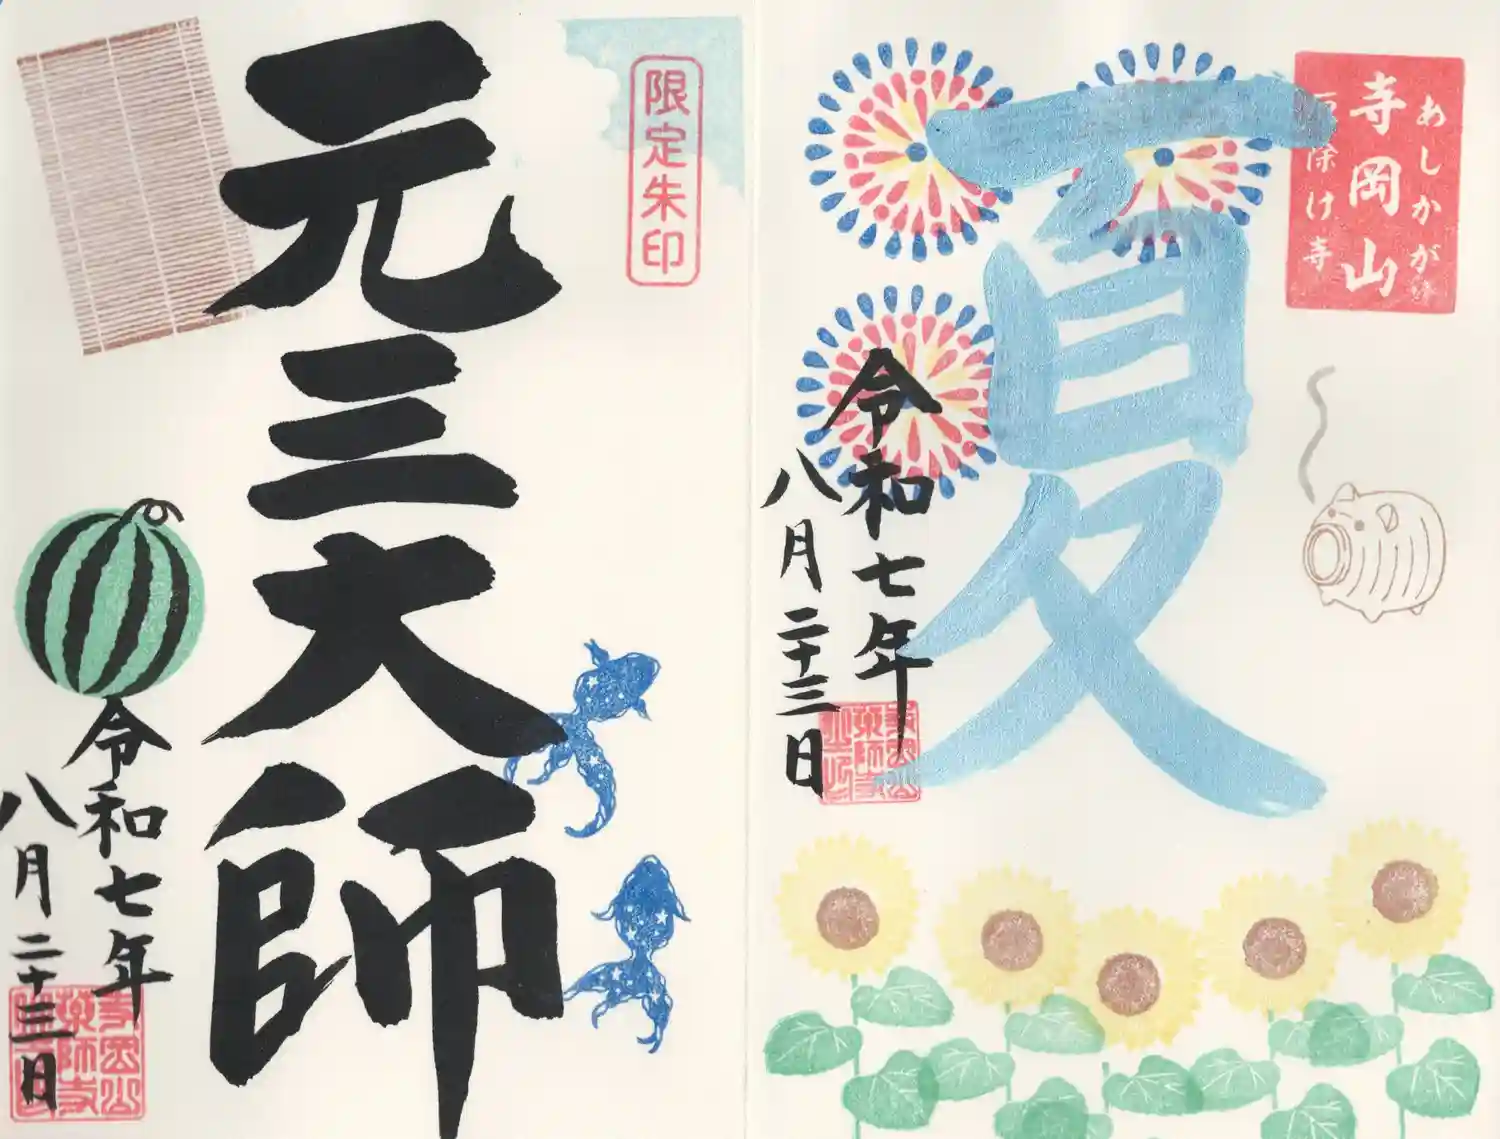 あしかが
寺岡山
除け寺
夏
令和七年
八月二十三日
寺岡山
薬師寺
限定朱印
元三大師
令和七年
八月二十三日
寺岡山
薬師寺